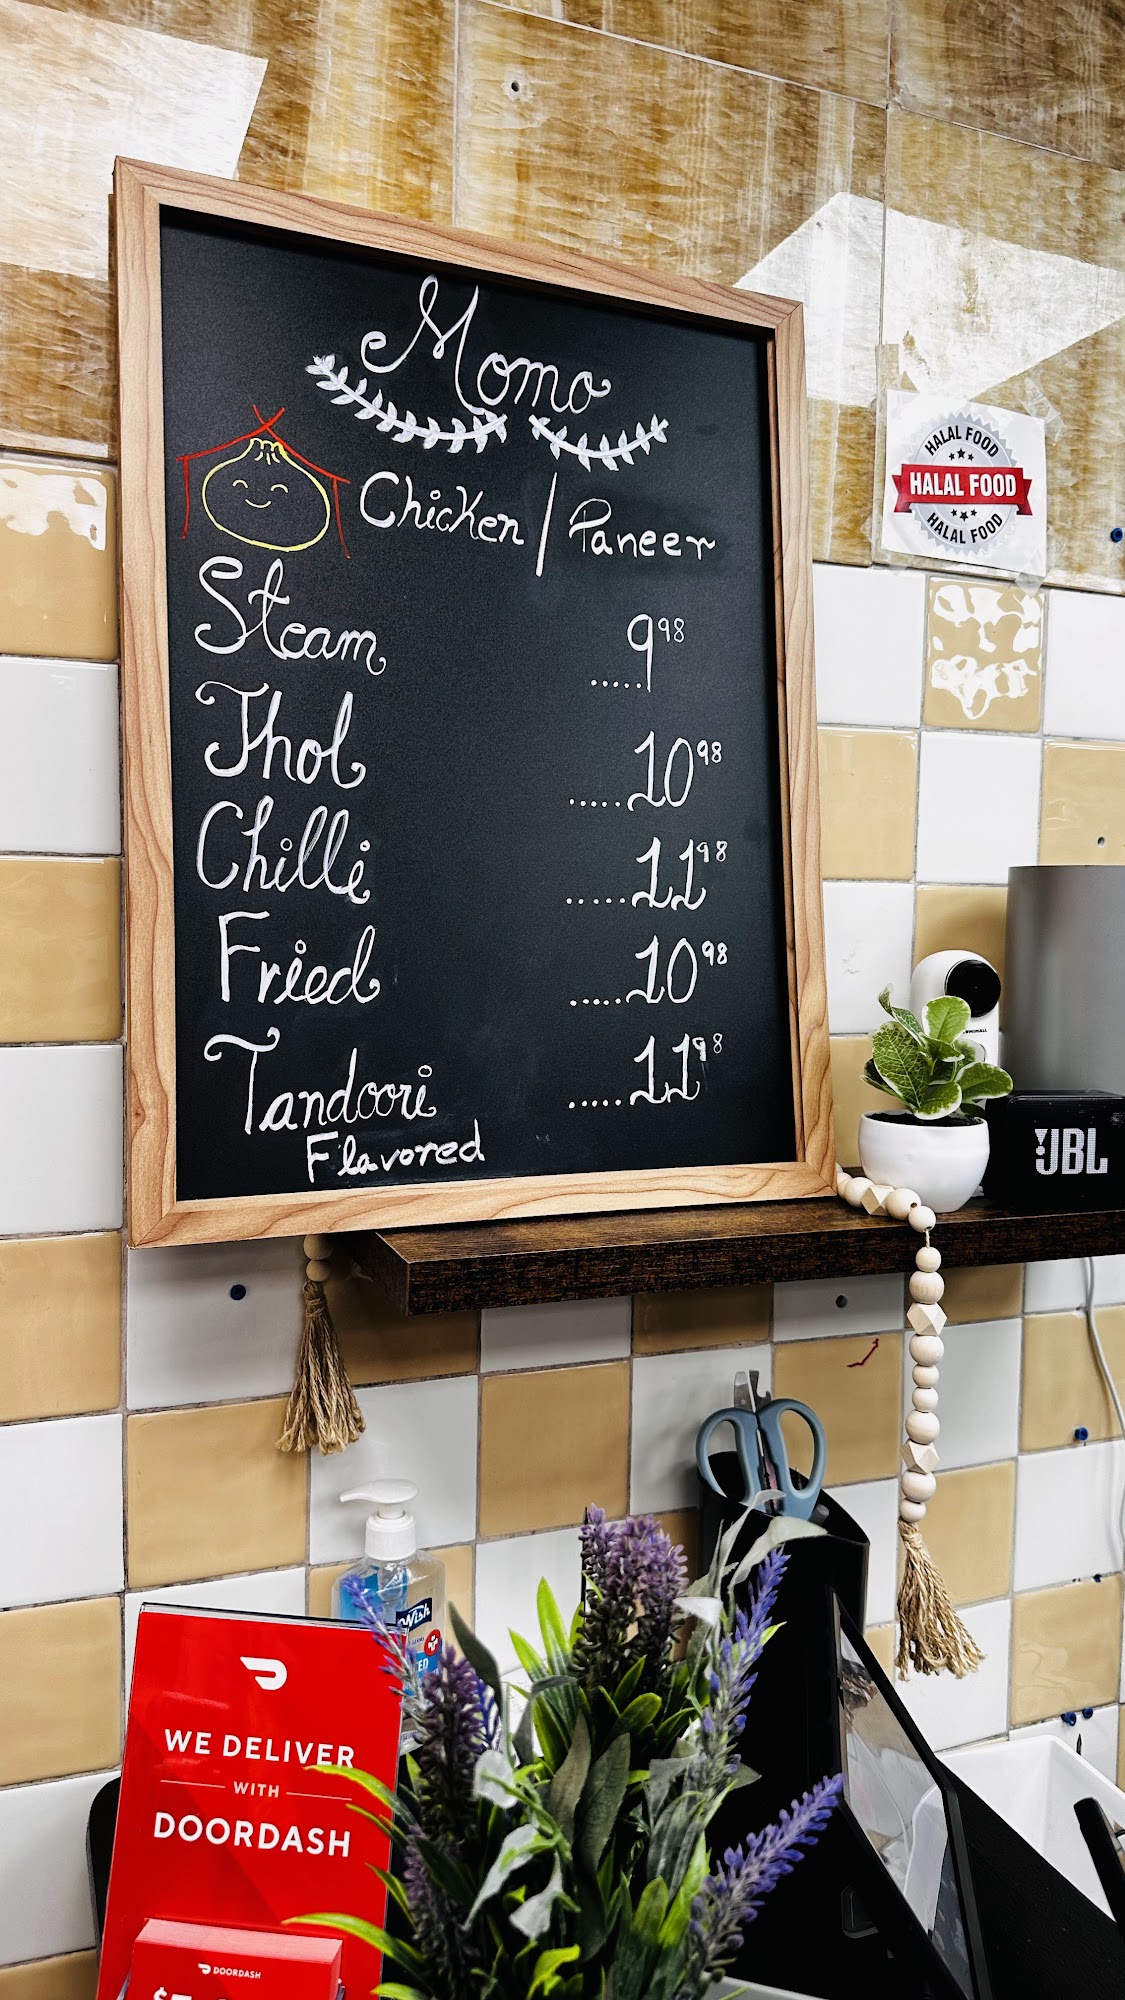 Momo
Chicken / Paneer
Steam .....9 98
Thol .....10 98
Chilli .....11 98
Fried .....10 98
Tandoori .....11 98
Flavored
HALAL FOOD
HALAL FOOD
HALAL FOOD
JBL
Wish
WE DELIVER
WITH
DOORDASH
DOORDASH